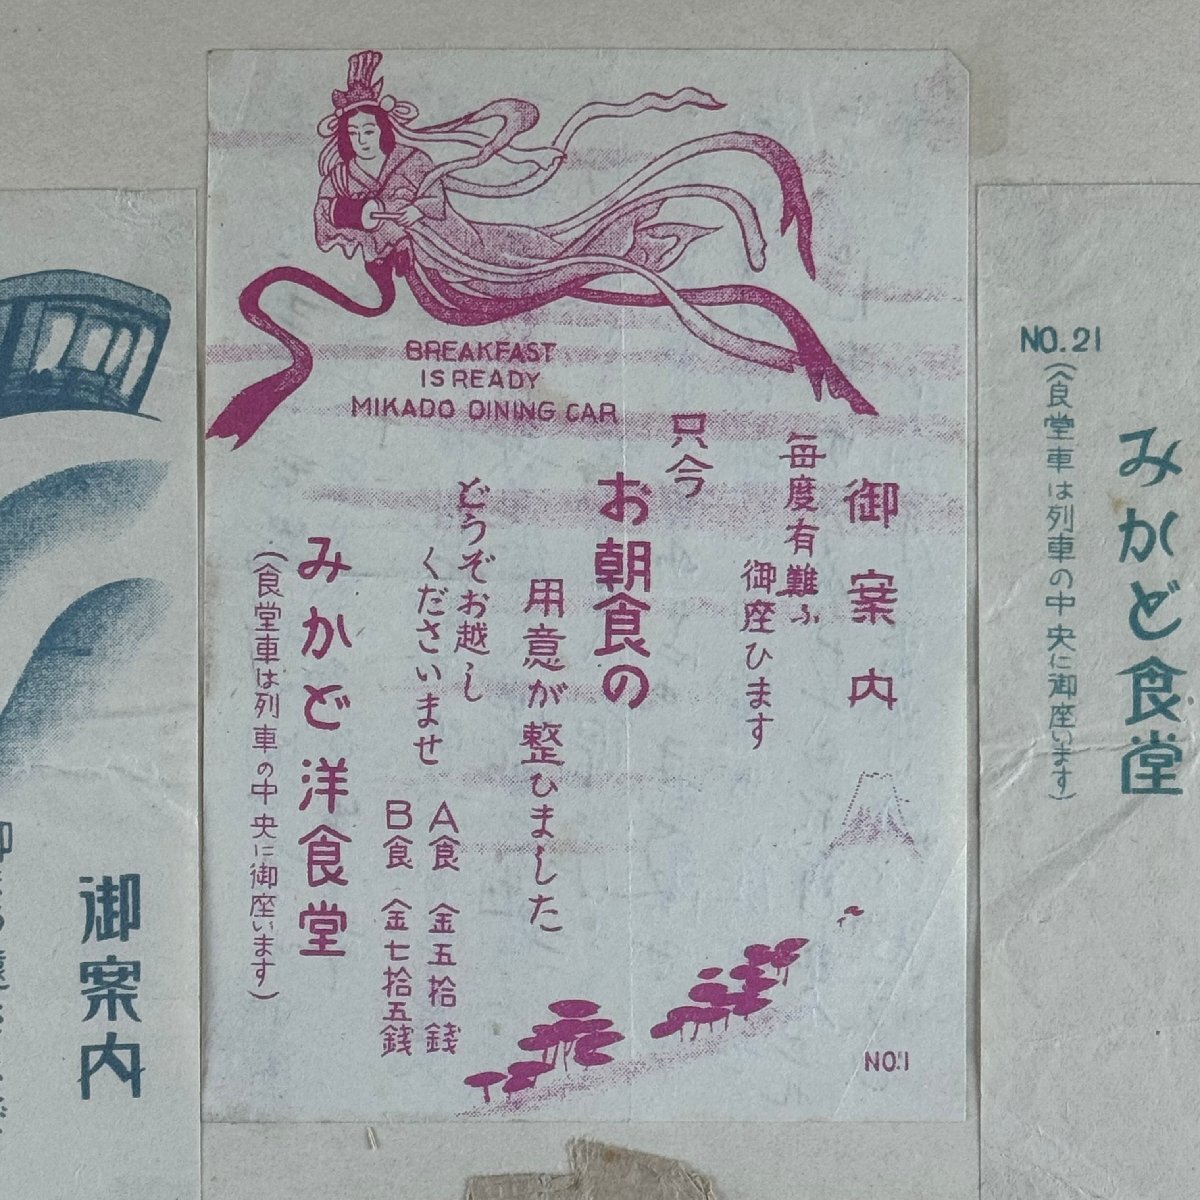 BREAKFAST
IS READY
MIKADO DINING CAR
御案内
毎度有難ふ
御座ひます
只今
お朝食の
用意が整ひました
どうぞお越し
くださいませ
A食 金五拾銭
B食 金七拾五銭
みかど洋食堂
(食堂車は列車の中央に御座います)
NO.1
NO.21
みかど食堂
(食堂車は列車の中央に御座います)
御案内